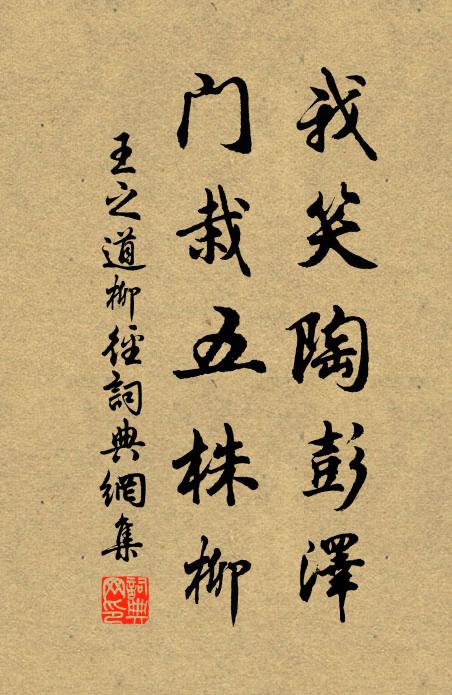 我笑陶彭澤
門栽五株柳
王之道柳徑詞典網集
詞典網印